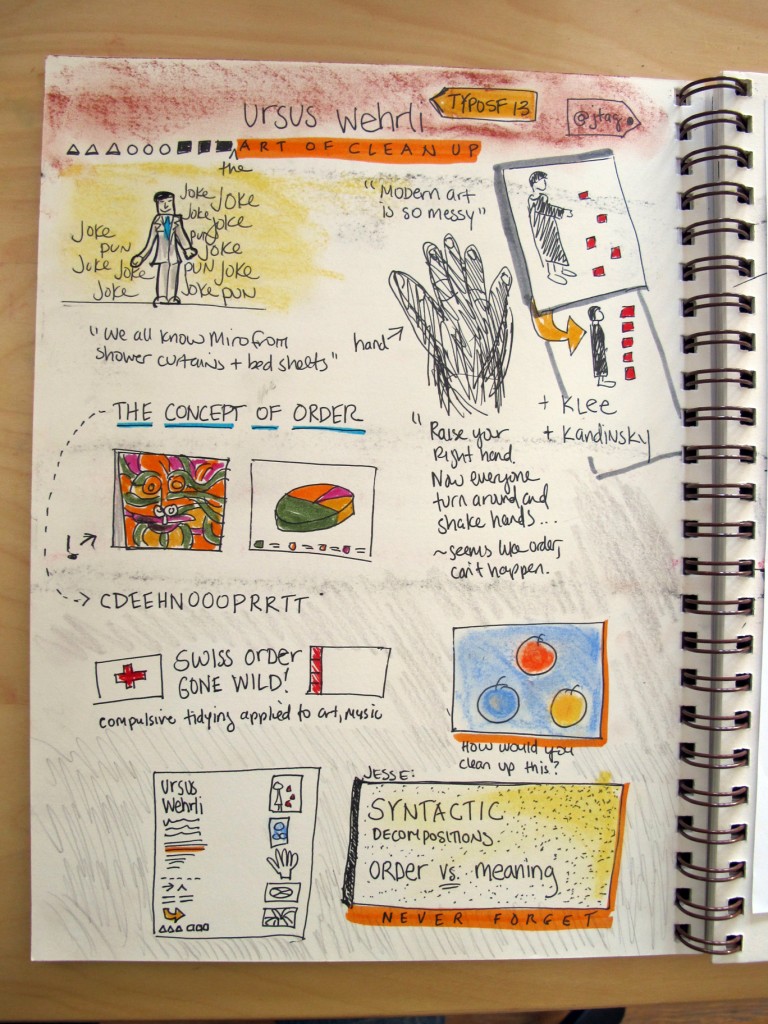 Ursus Wehrli
TYPOSF 13
@jtaq
the
ART OF CLEAN UP
JOKE JOKE
JOKE JOKE
JOKE PUN JOKE
PUN
JOKE JOKE PUN JOKE
JOKE JOKE PUN
"Modern art
is so messy"
"We all know Miro from
shower curtains + bed sheets"
hand
+ Klee
+ Kandinsky
THE CONCEPT OF ORDER
"Raise your
Right hand.
Now everyone
turn around and
shake hands...
~seems like order,
can't happen.
!
CDEEHNOOOPRRTT
SWISS ORDER
GONE WILD!
compulsive tidying applied to art, music
How would you
clean up this?
Ursus
Wehrli
JESSE:
SYNTACTIC
DECOMPOSITIONS
ORDER vs. meaning
NEVER FORGET